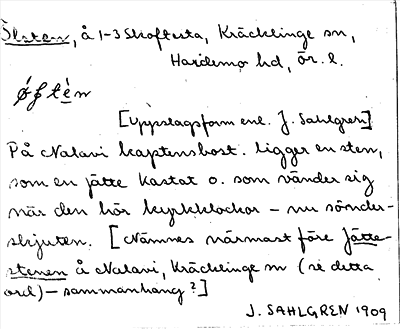 Ölsten, å 1-3 Skofteta, Kräcklinge sn,
Hardemo hd, Ör. l.
[Uppslagsform enl. J. Sahlgren]
På Nalavi kaptensbost. ligger en sten,
som en jätte kastat o. som vänder sig
när den hör kyrkklockor – nu sönder-
skjuten. [Nämnes närmast före Jätte-
stenen å Nalavi, Kräcklinge sn (se detta
ord) – sammanhang?]
J. SAHLGREN 1909